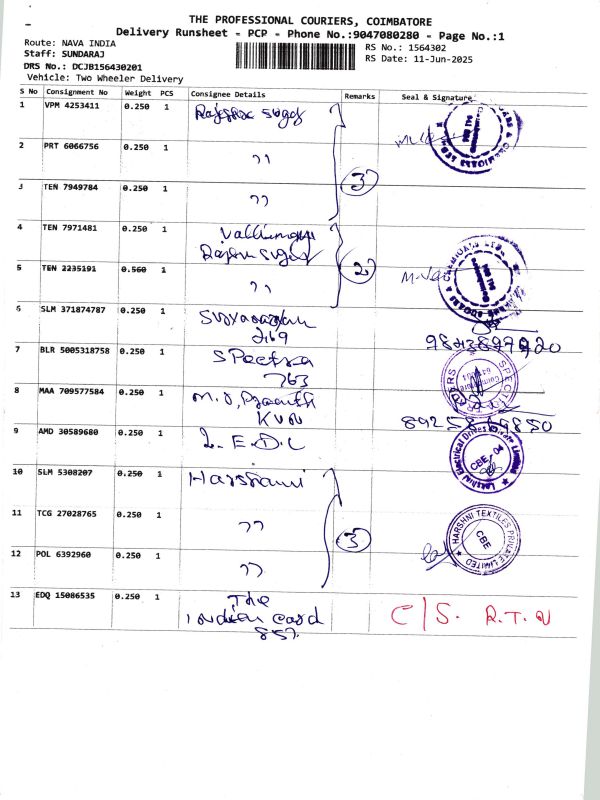 THE PROFESSIONAL COURIERS, COIMBATORE
Delivery Runsheet - PCP - Phone No.:9047080280 - Page No.:1
Route: NAVA INDIA
RS No.: 1564302
Staff: SUNDARAJ
RS Date: 11-Jun-2025
DRS No.: DCJB156430201
Vehicle: Two Wheeler Delivery
S No Consignment No Weight PCS Consignee Details Remarks Seal & Signature
1 VPM 4253411 0.250 1
2 PRT 6066756 0.250 1 ,,
3 TEN 7949784 0.250 1 ,, 3
4 TEN 7971481 0.250 1
5 TEN 2235191 0.560 1 ,, 2
6 SLM 371874787 0.250 1
2169
7 BLR 5005318758 0.250 1 Spectra
763
8 MAA 709577584 0.250 1
KVN
9 AMD 30589680 0.250 1 L.E.D.C
Lakshmi Electrical Drives Private Limited
CBE - 04
10 SLM 5308207 0.250 1 Harshani
11 TCG 27028765 0.250 1 ,, 3
HARSHNI TEXTILES PRIVATE LIMITED
CBE
12 POL 6392960 0.250 1 ,,
13 EDQ 15086535 0.250 1 The
Indian card
857
C/S. R.T.O